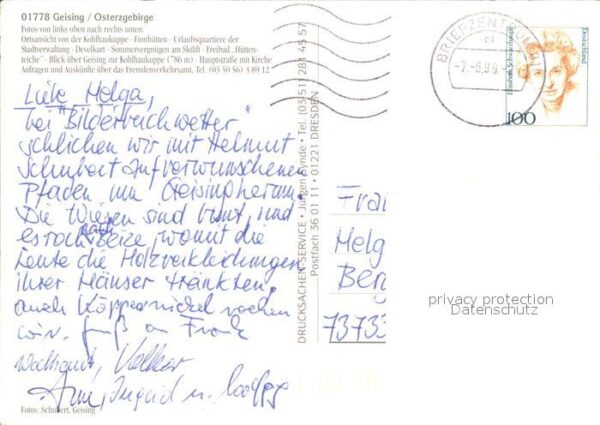 01778 Geising / Osterzgebirge
Fotos von links oben nach rechts unten:
Ortsansicht von der Kohlhaukuppe · Finnhütten · Urlaubsquartiere der
Stadtverwaltung · Deselkart · Sommervergnügen am Skilift · Freibad „Hütten-
teiche“ · Blick über Geising zur Kohlhaukuppe (786 m) · Hauptstraße mit Kirche
Anfragen und Auskünfte über das Fremdenverkehrsamt, Tel. (03 50 56) 3 89 12
Liebe Helga,
bei "Bilderbuchwetter"
schlichen wir mit Helmut
Schubert auf verwunschenen
Pfaden um Geising herum.
Die Wiesen sind bunt, und
es roch nach Beize, womit die
Leute die Holzverkleidungen
ihrer Häuser tränkten,
auch Köppernickel rochen
wir. Gruß an Frank
Volker
Ingrid u.
Fotos: Schubert, Geising
DRUCKSACHEN-SERVICE · Jürgen Bynde · Tel. (03 51) 281 45 57
Postfach 36 01 11 · 01221 DRESDEN
BRIEFZENTRUM 01
cl
-7.-6.99
Deutschland
100
Fra
Helg
Ber
73733
privacy protection
Datenschutz